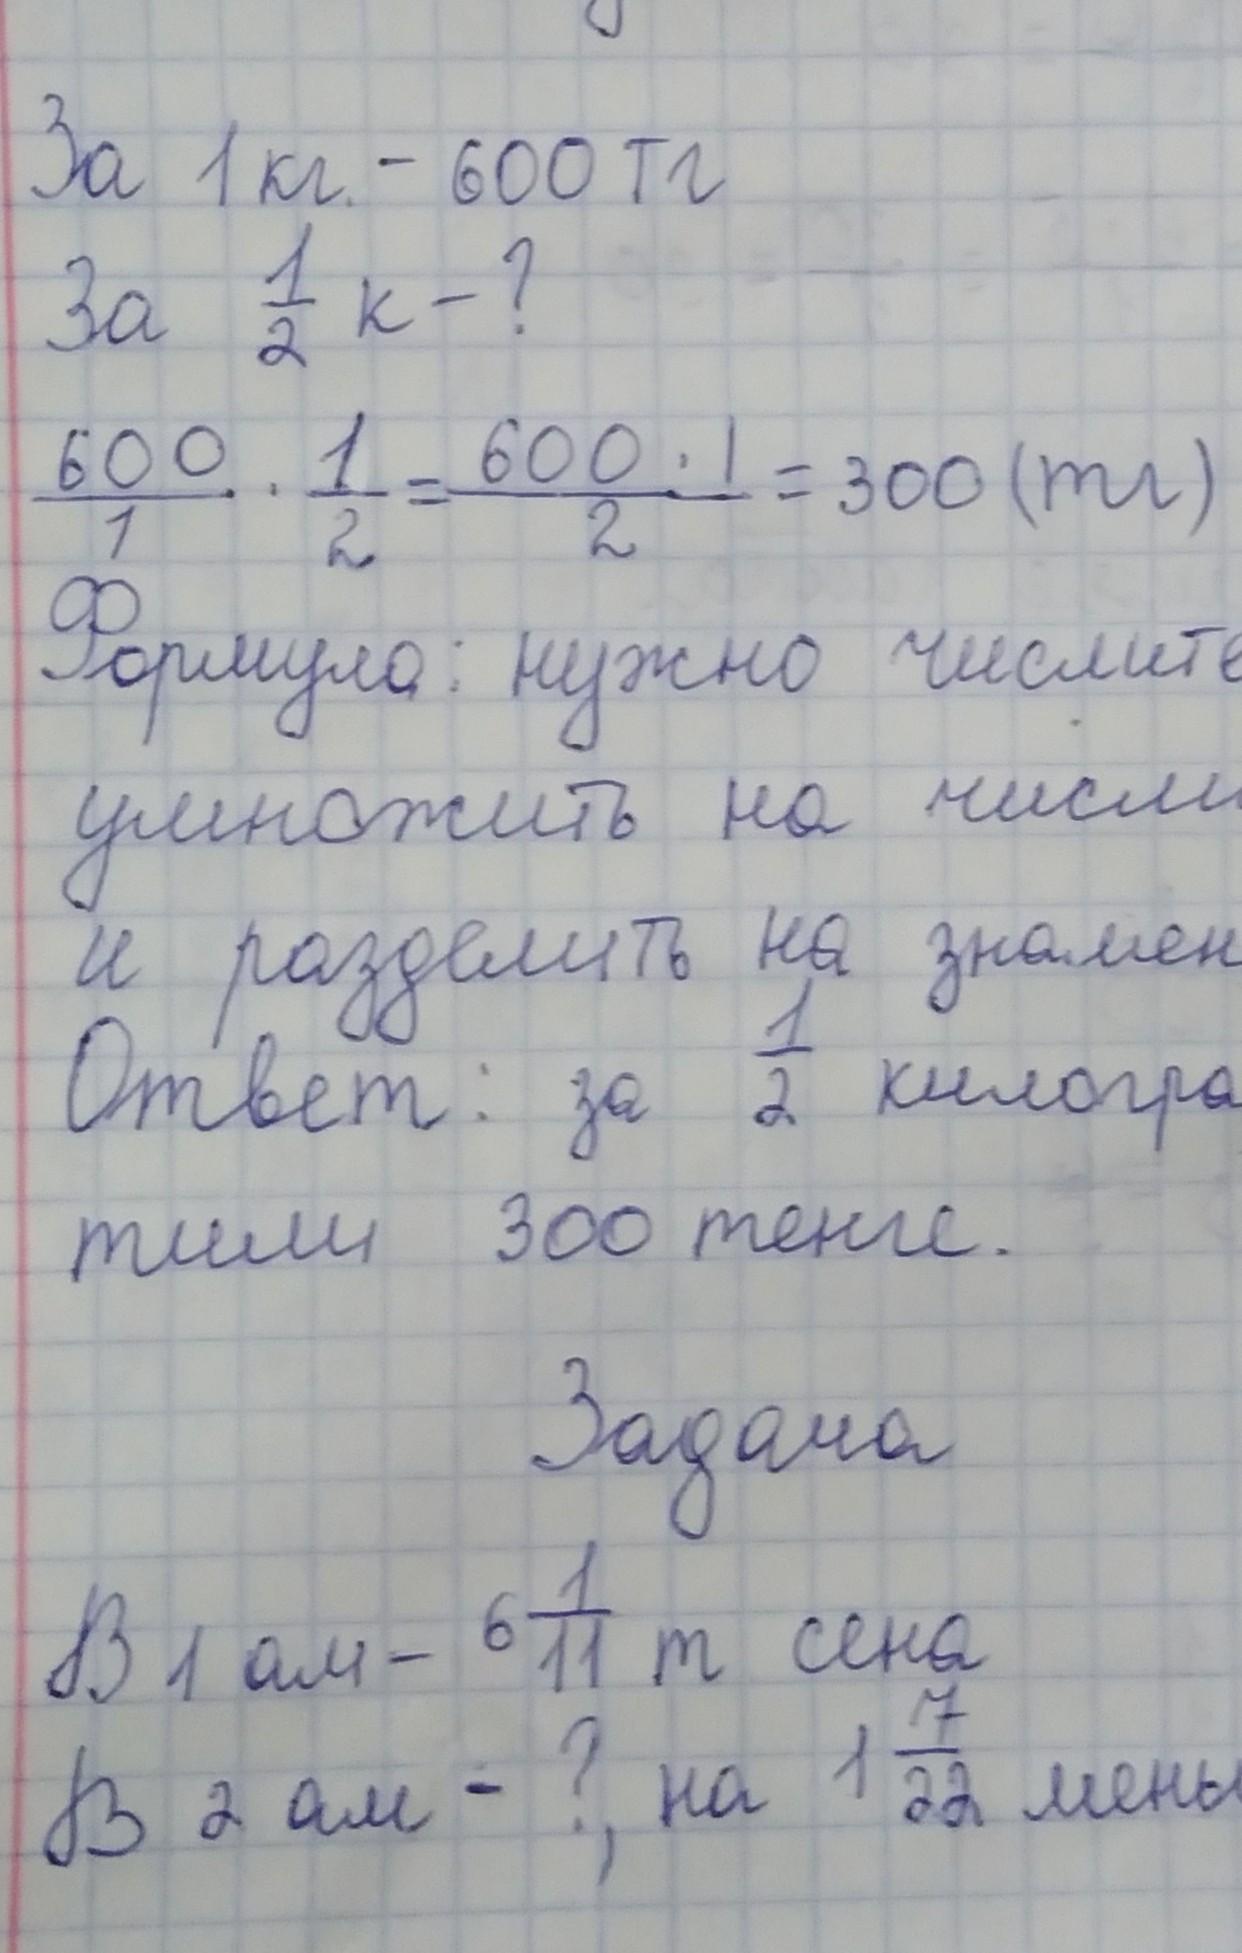 За 1 кг. - 600 Тг
За 1/2 к - ?
600/1 · 1/2 = 600 · 1/2 = 300 (тг)
Формула: нужно числите
умножить на числи
и разделить на знамен
Ответ: за 1/2 килогра
тили 300 тенге.
Задача
В 1 ам - 6 1/11 т сена
В 2 ам - ?, на 1 7/22 мень